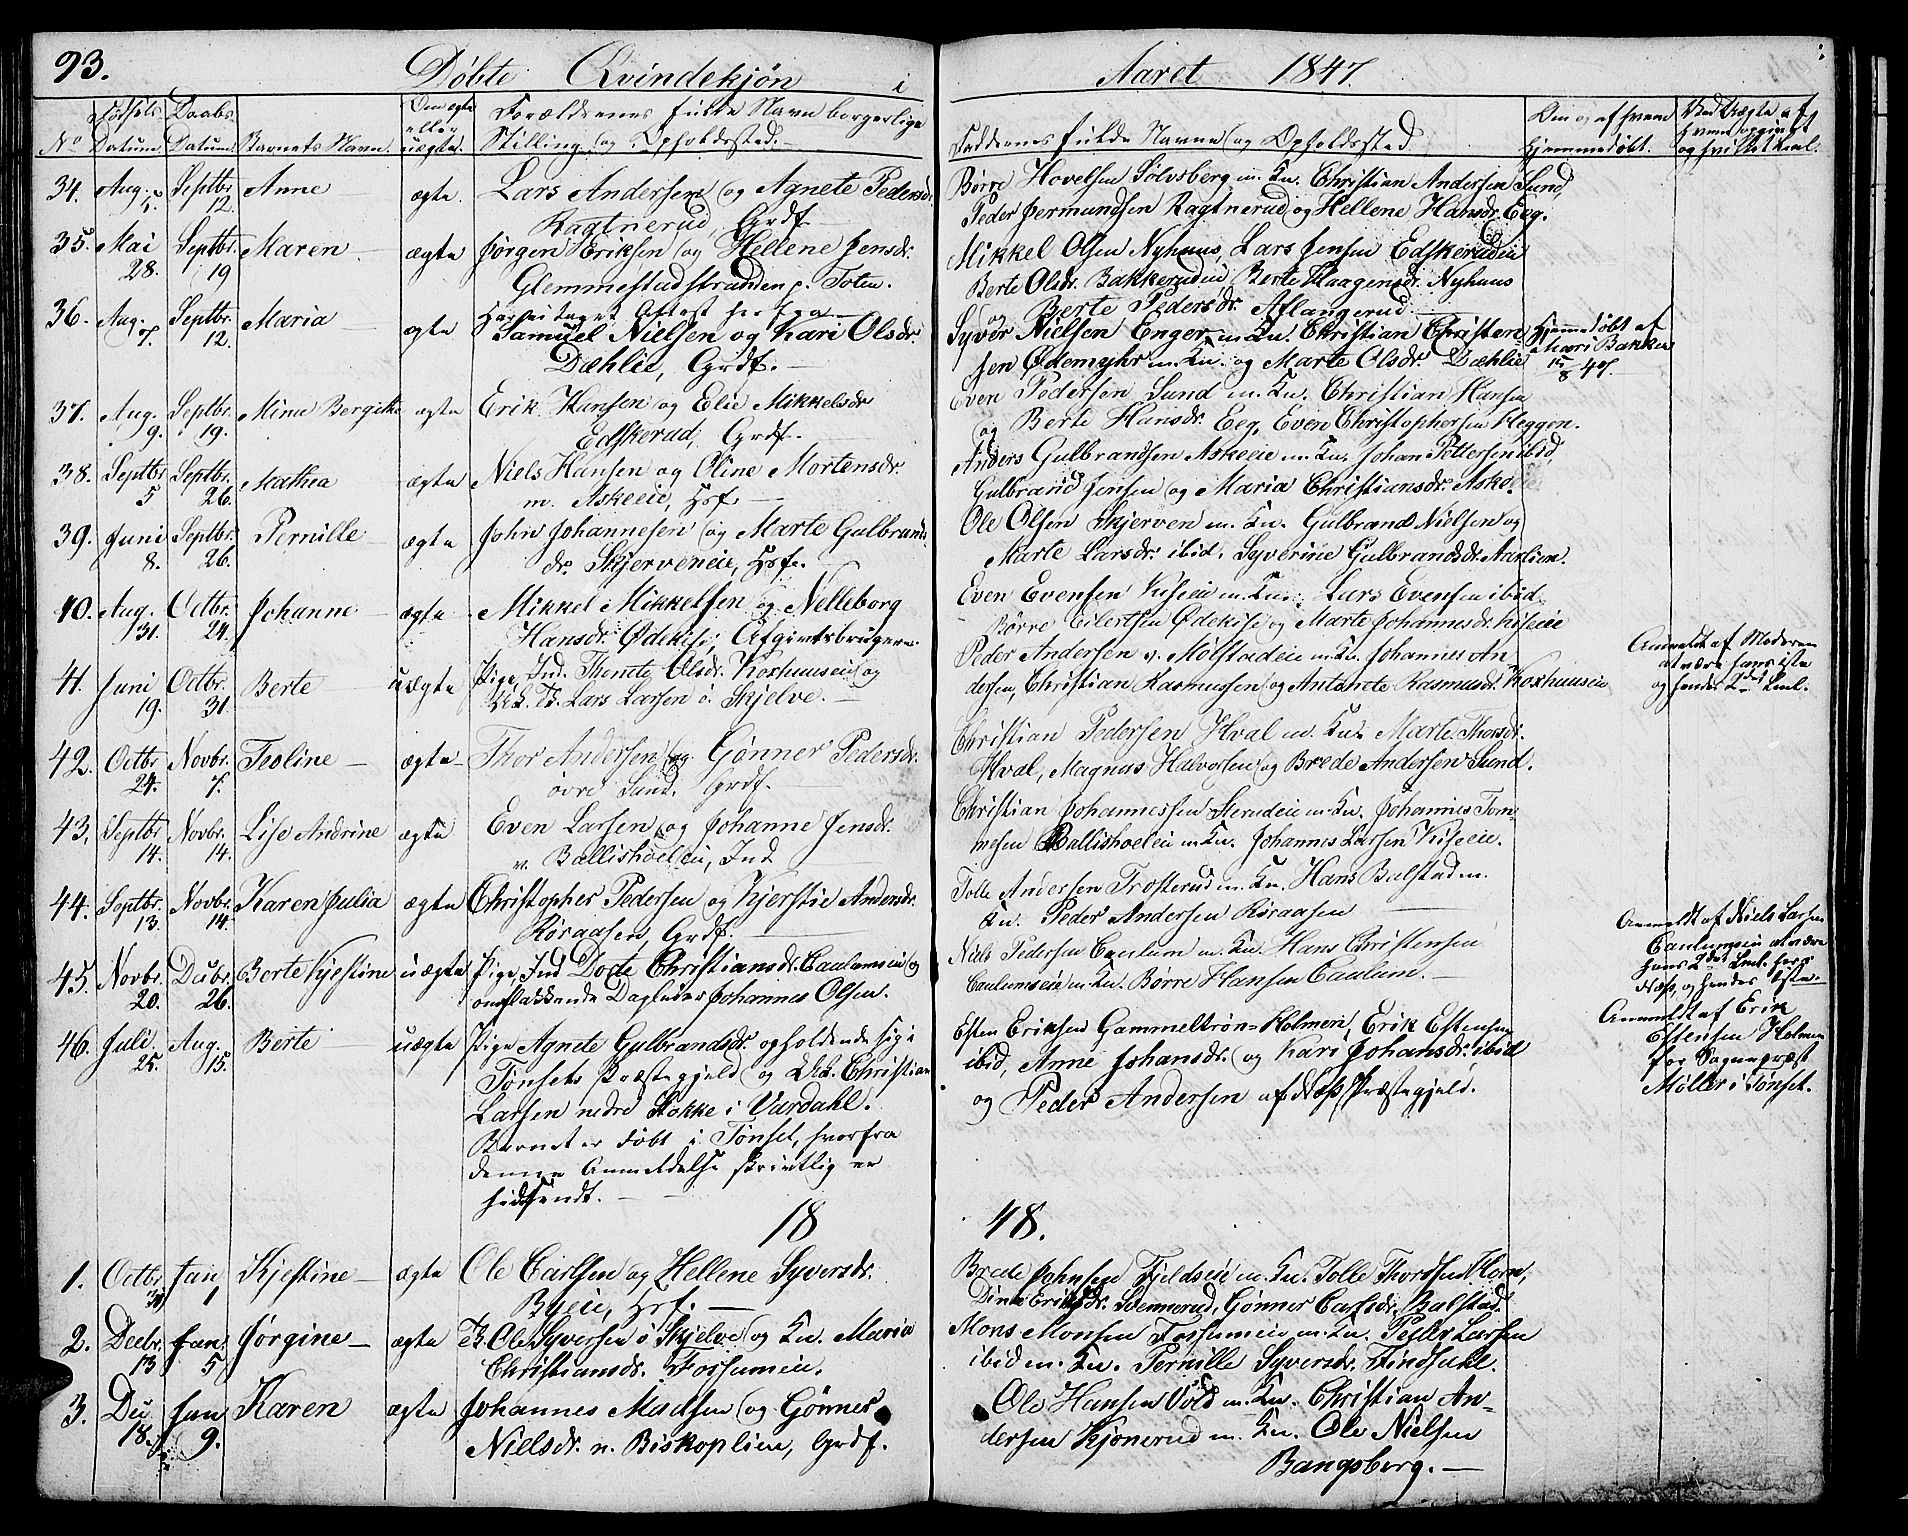 93.
Døbte Qvindekjön i Aaret 1847.
No Fødsels Datum Daabs Datum Barnets Navn. Om ægte eller uægte. Forældrenes fulde Navn borgerlige Stilling og Opholdssted. Faddernes fulde Navne og Opholdssted. Om og af hvem hjemmedøbt.
34. Aug. Septbr. 12. Anne ægte. Lars Andersen og Agnete Pedersdr.
Ragtnerud, Grdf.
Børre Hovelsen Sølvsberg m. Kn. Christian Andersen Sund,
Peder Jermundsen Ragtnerud og Hellene Hansdr. Eeg.
35. Mai 28. Septbr. 19 Maren ægte Jörgen Eriksen og Hellene Jensdr.
Glemmestadstranden p. Toten.
Mikkel Olsen Nyhuus, Lars Jensen Edskerudeie
Berte Olsdr. Bakkerudeie Berte Haagensdr. Nyhuus
og Berte Pedersdr. Aflangerud.
36. Aug. 7. Septbr. 12. Maria ægte Samuel Nielsen og Kari Olsdr.
Dæhlie, Grdf.
Syver Nielsen Enger m. Kn. Christian Christen-
sen Ødemyhr m. Kn. og Marte Olsdr. Dæhlie
Hjemmedøbt af
Mari Bakken
15/8 47.
37. Aug. 9. Septbr. 19. Mina Bergitte ægte Erik Hansen og Elie Mikkelsdr
Edskerud, Grdf.
Even Pedersen Sund m. Kn. Christian Hansen
og Berte Hansdr. Eeg, Even Christophersen Heggen.
38. Septbr. 5 Septbr. 26. Mathea ægte Niels Hansen og Oline Mortensdr.
m. Askeeie, Hsf.
Anders Gulbrandsen Askeeie m. Kn. Johan Pettersen ibid,
Gulbrand Jensen og Maria Christiansdr. Aske.
39. Juni 8. Septbr. 26. Pernille ægte John Johannesen og Marte Gulbrands
dr. Skjerveneie, Hsf.
Ole Olsen Skjerven m. Kn. Gulbrand Nielsen og
Marte Larsdr. ibid. Syverine Gulbrandsdr.
40. Aug. 31. Octbr. 24. Johanne ægte Mikkel Mikkelsen og Nelleborg
Hansdr. Ødekise, Afgivtsbrugere.
Even Evensen Kiseeie m. Kn. Lars Evensen ibid.
Børre Eilertsen Ødekise og Marte Johannesdr. Kiseeie
41. Juni 19. Octbr. 31. Berte uægte Pige, Ind. Olsdr. Koxhuuseie og
Lars Larsen i Skjelve.
Peder Andersen v. Mølstadeie m. Kn. Johannes An-
dersen, Christian Rasmussen og Antonette Rasmusdr. Koxhuuseie
Anmeldt af Moderen
at være hans 1ste
og hendes 2det Leml.
42. Octbr 24. Novbr. 7. Teoline ægte Thor Andersen og Gønner Pedersdr.
övre Sund. Grdf.
Christian Pedersen Hval m. Kn. Marte Thorsdr.
Hval, Magnus Halvorsen og Brede Andersen Sund.
43. Septbr 14. Novbr. 14. Lise Andrine ægte Even Larsen og Johanne Jensdr.
v. Ballishoeleie, Ind
Christian Johannessen Sterudeie m. Kn. Johannes Tom-
mesen Ballishoeleie m. Kn. Johannes Larsen Kiseeie.
44. Septbr. 13. Novbr. 14. Karen Julia ægte Christopher Pedersen og Kjerstie Andersdr.
Röraasen, Grdf.
Tolle Andersen Trosterud m. Kn. Hans Balstad m.
Kn. Peder Andersen Röraasen
45. Novbr. 20. Decbr. 26. Berte Kjestine uægte Pige, Ind Dorte Christiansdr. Caulumseie og
omflakkende Dagleier Johannes Olsen.
Niels Pedersen Caulum m. Kn. Hans Christensen
Caulumseie m. Kn. Børre Hansen Caulum.
Anmeldt af Niels Larsen
Caulumseie at være
hans 2det Leml. her i
Næs, og hendes 1ste.
46. Juli 25. Aug. 15. Berte uægte Pige Agnete Gulbrandsdr. opholdende sig i
Tönsets Præstegjeld og Christian
Larsen nedre Stokke i Vardahl.
Barnet er født i Tönset, hvorfra
denne Anmeldelse skriftlig er
hidsendt.
Esten Eriksen Gammeltrön-Holmen, Erik Estensen
ibid, Anne Johansdr. og Kari Johansdr. ibid
og Peder Andersen af Næs Præstegjeld.
Anmeldt af Erik
Estensen Holmen
for Sognepræst
Møller i Tönset.
1848.
1. Octbr 31 Jan 1 Kjestine ægte Ole Carlsen og Hellene Syversdr.
Byeie, Hsf.
Brede Johnsen Fjeldseie m. Kn. Tolle Thordsen Horn,
Eriksdr. Svennerud, Gönner Carlsdr. Balstad.
2. Decbr. 13 Jan. 5 Jörgine ægte Ole Syversen i Skjelve og Kn. Maria
Christiansdr. Fossumeie.
Mons Monsen Fossumeie m. Kn. Peder Larsen
ibid m. Kn. Pernille Syversdr. Tindsahl.
3. Dec. 18. Jan 9. Karen ægte Johannes Madsen og Gönner
Nielsdr. n. Biskoplien, Grdf.
Ole Hansen Vold m. Kn. Christian An-
dersen Kjönerud m. Kn. Ole Nielsen
Bangsberg.